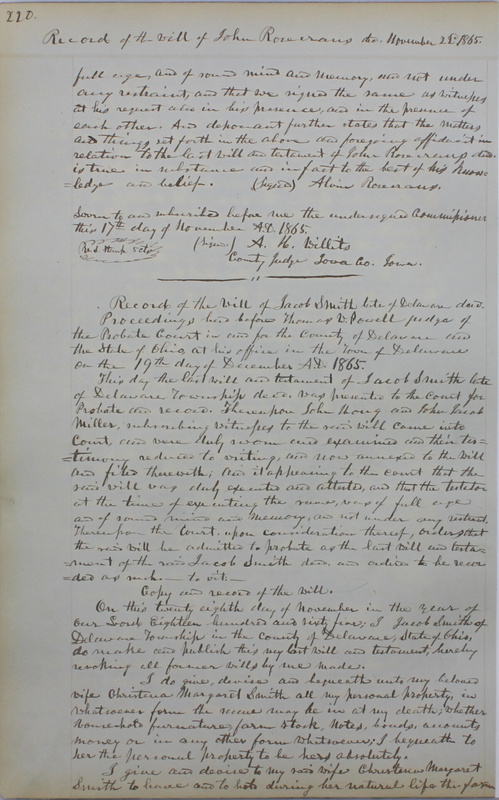 220.
Record of the will of John Rosecrans decd. November 28th 1865.
full age, and of sound mind and memory, and not under
any restraint, and that we signed the same as witnesses
at his request also in his presence, and in the presence of
each other. And deponant further states that the matters
and things set forth in the above and foregoing affidavit in
relation to the last will and testament of John Rosecrans decd.
is true in substance and in fact to the best of his know=
=ledge and belief. (Signed) Alvin Rosecrans.
Sworn to and subscribed before me the undersigned Commissioner
this 17th day of November A.D. 1865.
(Signed) A. H. Willits
County Judge Iowa Co. Iowa.
Record of the Will of Jacob Smith late of Delaware decd.
Proceedings had before Thomas W. Powell judge of
the Probate Court in and for the County of Delaware and
the State of Ohio at his office in the Town of Delaware
on the 19th day of December A.D. 1865.
This day the last will and testament of Jacob Smith late
of Delaware Township decd. was presented to the court for
Probate and record. Thereupon John Hong and John Jacob
Miller, subscribing witnesses to the said will came into
Court and were duly sworn and examined and their tes=
=timony reduced to writing, and now annexed to the will
and filed therewith; and it appearing to the court that the
said will was duly executed and attested, and that the testator
at the time of executing the same, was of full age
and of sound mind and memory, and not under any restraint.
Thereupon the Court, upon consideration thereof, orders that
the said will be admitted to probate as the last will and testa=
=ment of the said Jacob Smith decd. and ordered to be recor=
=ded as such. to wit:—
Copy and record of the will.
On this twenty eighth day of November in the year of
our Lord Eighteen hundred and sixty four, I Jacob Smith of
Delaware Township in the county of Delaware, State of Ohio,
do make and publish this my last will and testament, hereby
revoking all former wills by me made.
I do give, devise and bequeath unto my beloved
wife Christena Margaret Smith all my personal property, in
whatsoever form the same may be in at my death; whether
household furniture, farm stock, notes, bonds, accounts
money or in any other form whatsoever; I bequeath to
her the personal property to be hers absolutely.
I give and devise to my said wife Christena Margaret
Smith to have and to hold during her natural life the farm